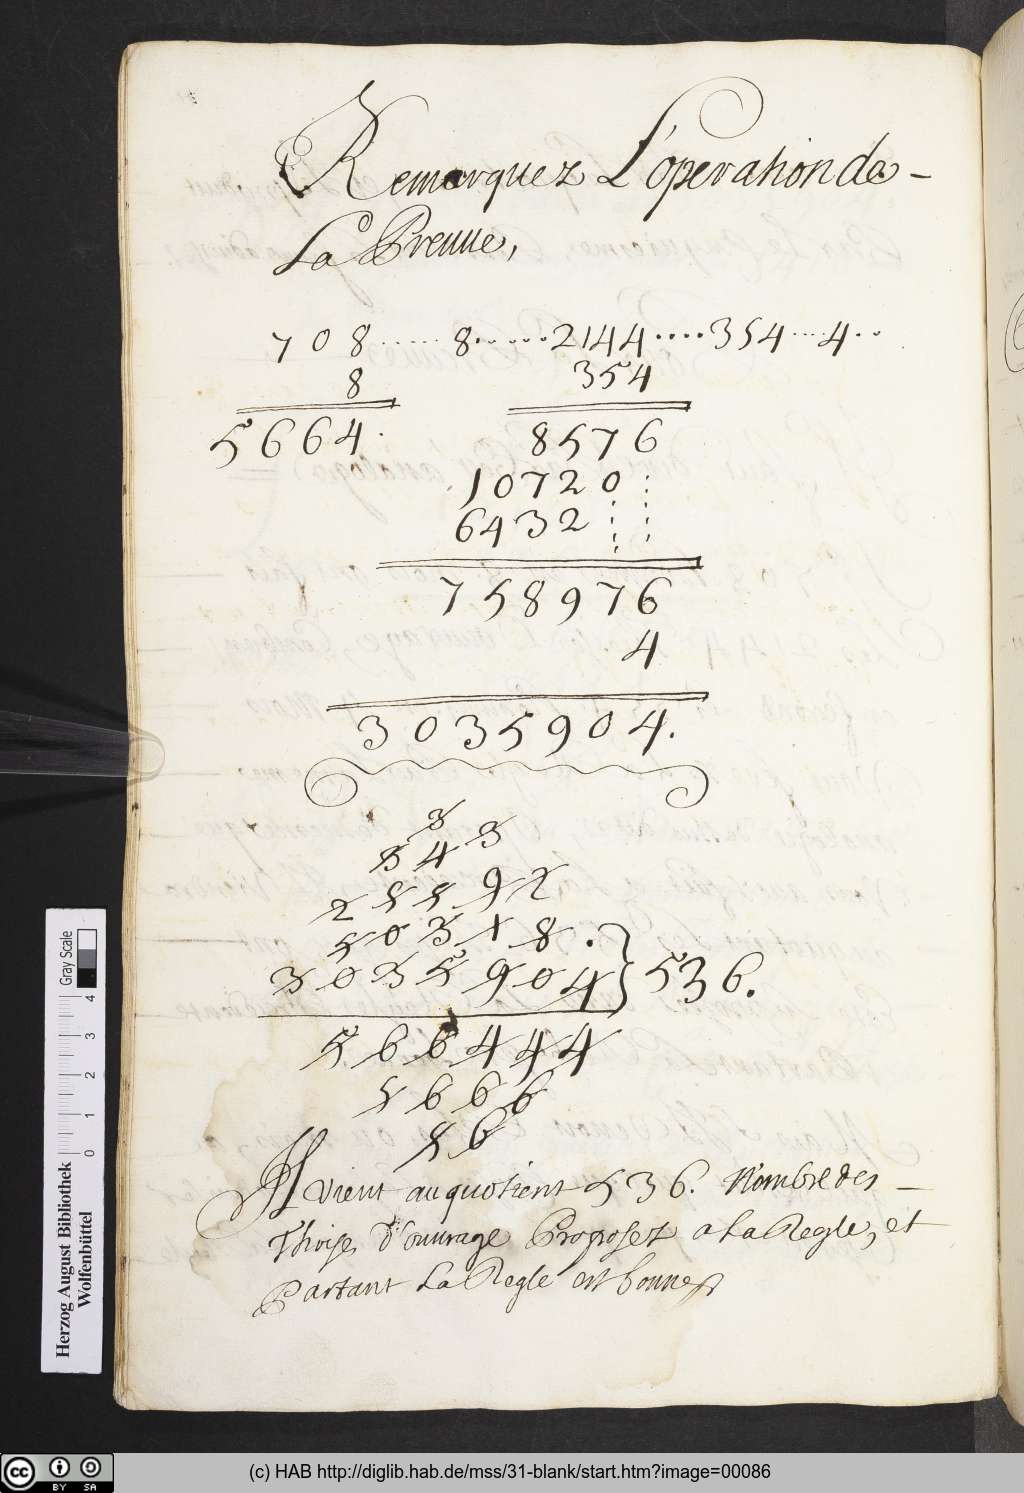 Remarquez L'operation de -
La Preuue,
7 0 8 ..... 8 ...... 2144 .... 354 ... 4 ..
8 354
5 6 6 4 . 8 5 7 6
1 0 7 2 0 :
6 4 3 2 : :
7 5 8 9 7 6
4
3 0 3 5 9 0 4 .
3
3 4 3
2 5 5 9 2
5 0 3 1 8 .
3 0 3 5 9 0 4 } 5 3 6 .
5 6 6 4 4 4
5 6 6 6
5 6
Il vient au quotient 5 3 6. Nombre des -
Thoises d'ouurage Proposez a la Regle, et
Partant La Regle est bonne
Gray Scale
0 1 2 3 4
Herzog August Bibliothek
Wolfenbüttel
cc BY SA
(c) HAB http://diglib.hab.de/mss/31-blank/start.htm?image=00086